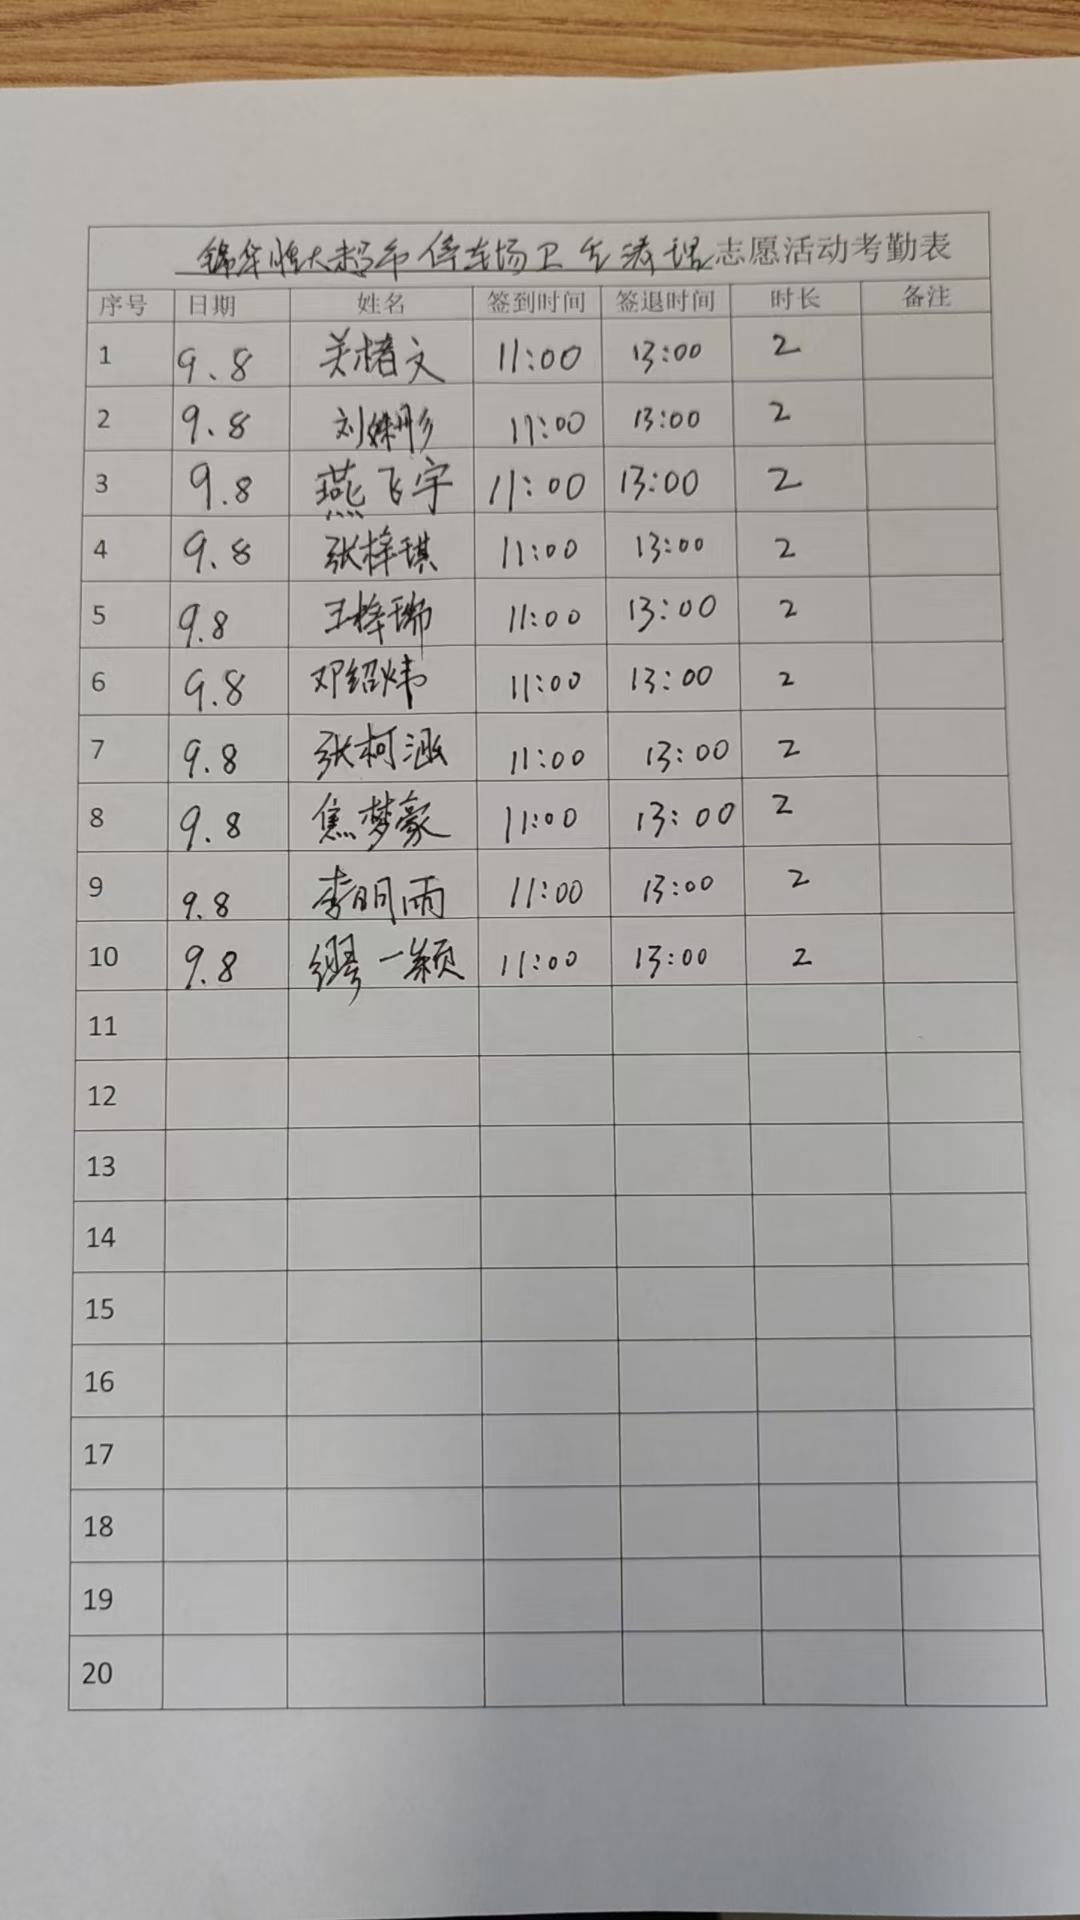 锦华恒大超市停车场卫生清理志愿活动考勤表
序号 日期 姓名 签到时间 签退时间 时长 备注
1 9.8 关楮文 11:00 13:00 2
2 9.8 刘姝彤 11:00 13:00 2
3 9.8 燕飞宇 11:00 13:00 2
4 9.8 张梓琪 11:00 13:00 2
5 9.8 王梓瑞 11:00 13:00 2
6 9.8 邓绍炜 11:00 13:00 2
7 9.8 张柯涵 11:00 13:00 2
8 9.8 焦梦豪 11:00 13:00 2
9 9.8 李明雨 11:00 13:00 2
10 9.8 缪一颖 11:00 13:00 2
11
12
13
14
15
16
17
18
19
20